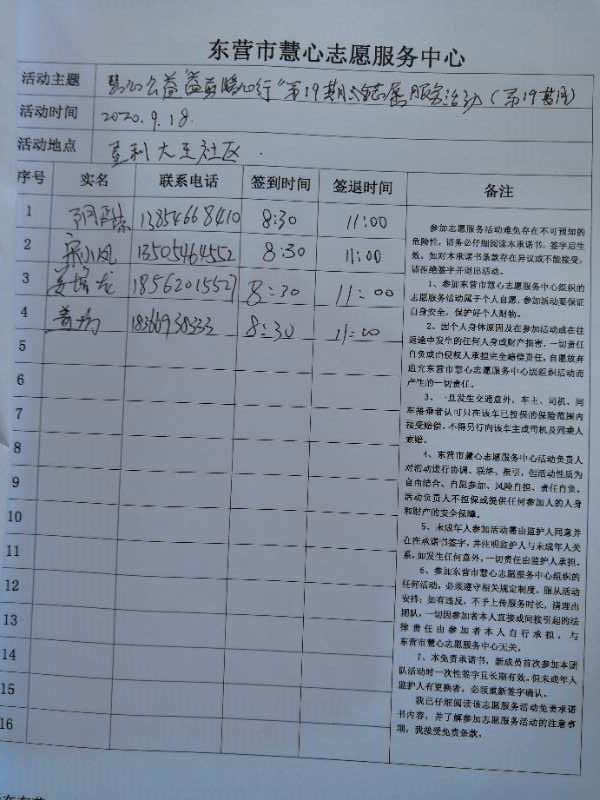 东营市慧心志愿服务中心
活动主题 慧心公益"益路暖心行"第19期志愿服务活动(第19期)
活动时间 2020.9.18.
活动地点 垦利大王社区.
序号 实名 联系电话 签到时间 签退时间 备注
1 13854668410 8:30 11:00
2 宋小凤 13505464552 8:30 11:00
3 18562015527 8:30 11:00
4 8:30 11:00
5
6
7
8
9
10
11
12
13
14
15
16
参加志愿服务活动难免存在不可预知的
危险性,请务必仔细阅读本承诺书。签字后生
效。如对本承诺书条款存在异议或不能接受,
请拒绝签字并退出活动。
1、参加东营市慧心志愿服务中心组织的
志愿服务活动属于个人自愿,参加活动要保证
自身安全,保护好个人财物。
2、因个人身体原因及在参加活动或在往
返途中发生的任何人身或财产损害,一切责任
自负或由侵权人承担完全赔偿责任,自愿放弃
追究东营市慧心志愿服务中心因组织活动而
产生的一切责任。
3、一旦发生交通意外,车主、司机、同
车搭乘者认可只在该车已投保的保险范围内
接受赔偿,不得另行向该车主或司机及同乘人
索赔。
4、东营市慧心志愿服务中心活动负责人
对活动进行协调、联络、指引,但活动性质为
自由结合、自愿参加、风险自担、责任自负。
活动负责人不担保或提供任何参加人的人身
和财产的安全保障。
5、未成年人参加活动需由监护人同意并
在在承诺书签字,并注明监护人与未成年人关
系,如发生任何意外,一切责任由监护人承担。
6、参加东营市慧心志愿服务中心组织的
任何活动,必须遵守相关规定制度,服从活动
安排;如有违反,不予上传服务时长,清理出
团队,一切因参加者本人直接或间接引起的法
律责任由参加者本人自行承担,与
东营市慧心志愿服务中心无关。
7、本免责承诺书,新成员首次参加本团
队活动时一次性签字且长期有效。但未成年人
监护人有更换者,必须重新签字确认。
我已仔细阅读该志愿服务活动免责承诺
书内容,并了解参加志愿服务活动的注意事
项,我接受免责条款。